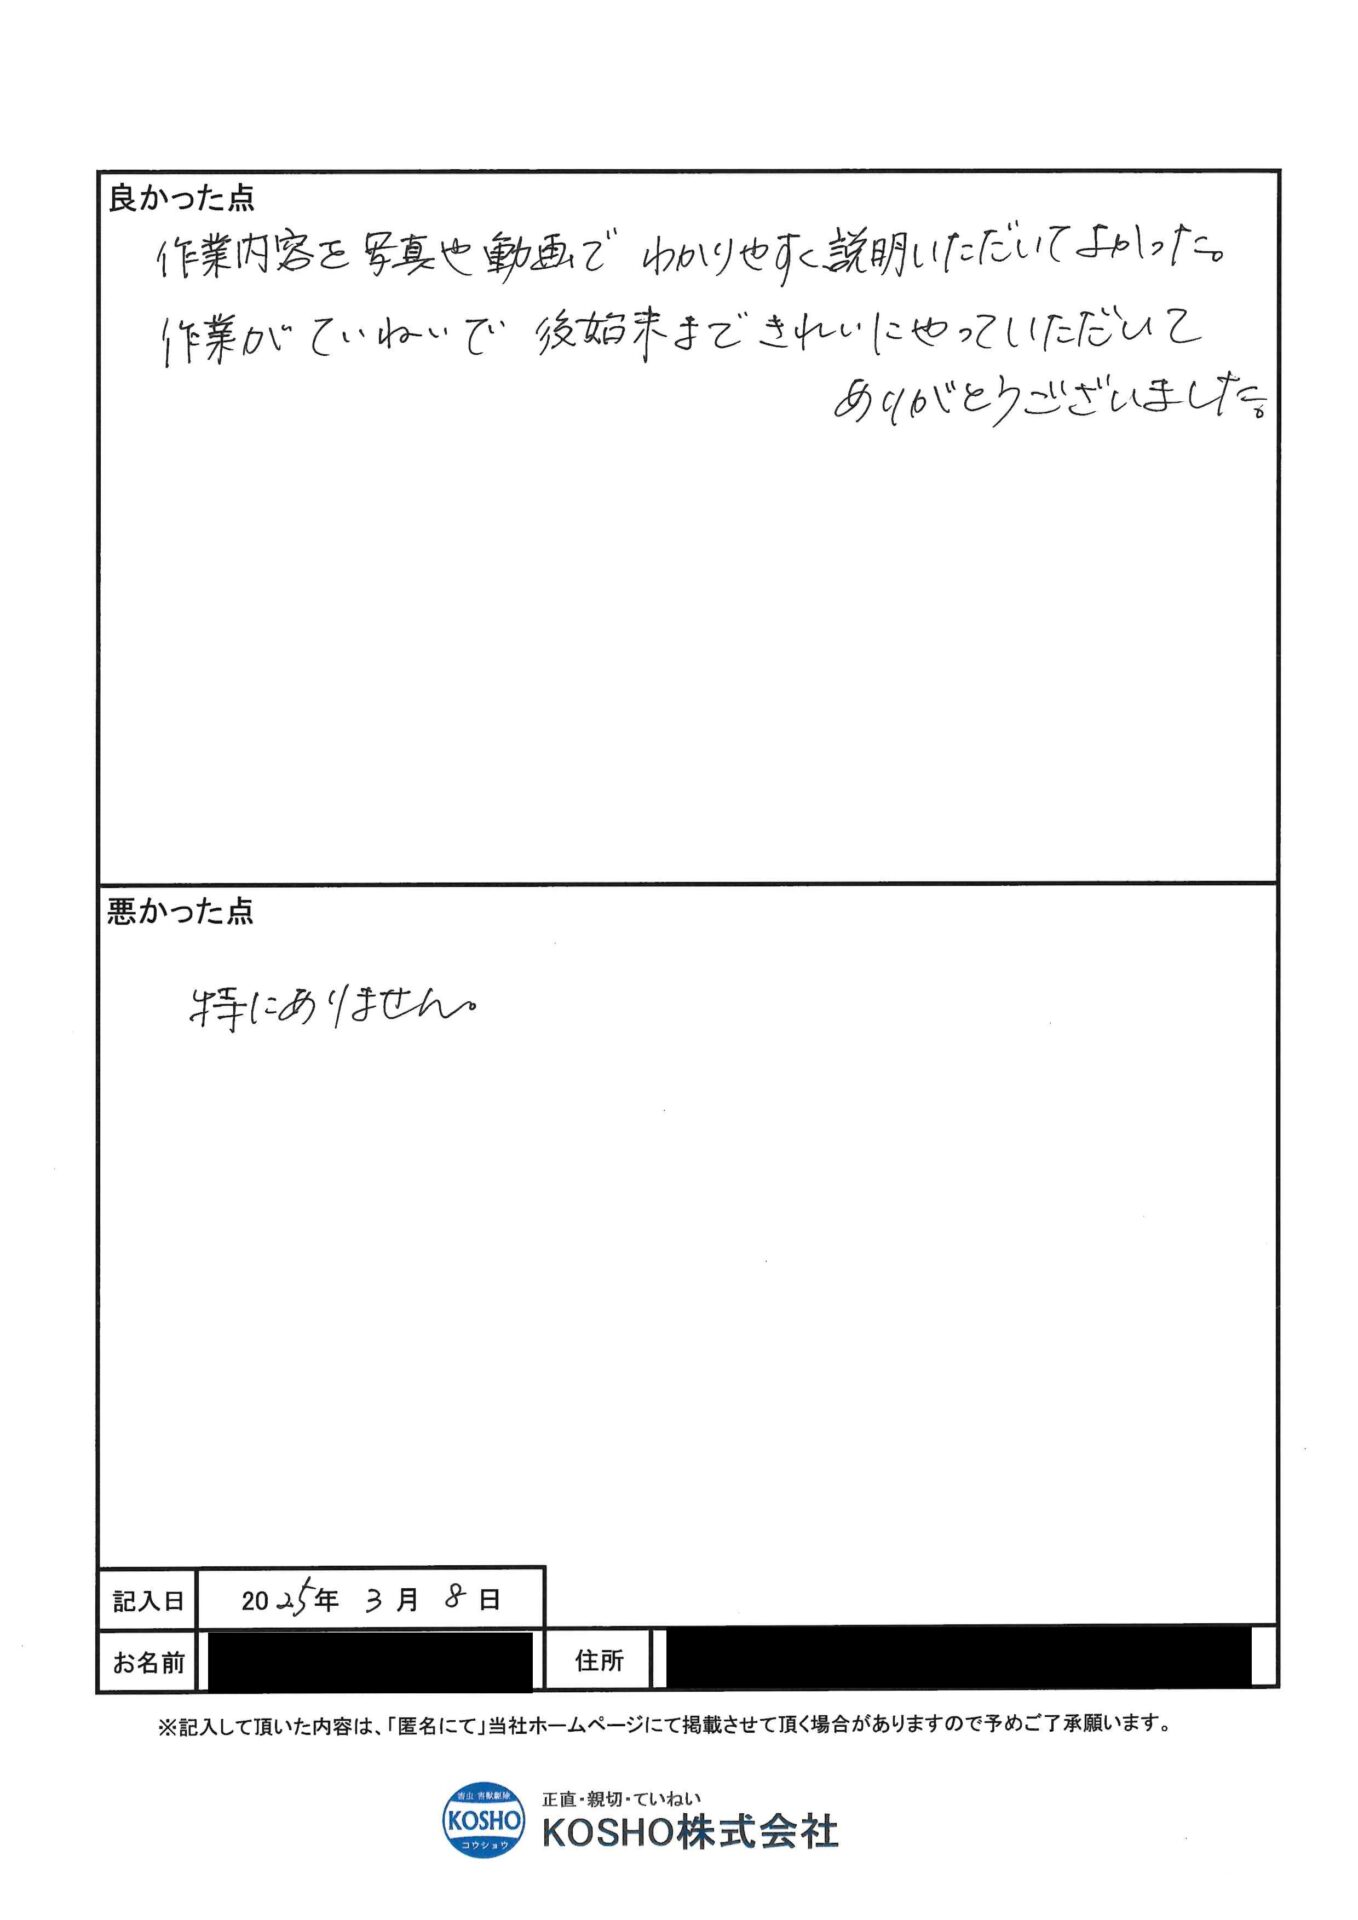 良かった点
作業内容を写真や動画でわかりやすく説明いただいてよかった。
作業がていねいで後始末まできれいにやっていただいて
ありがとうございました。
悪かった点
特にありません。
記入日 2025年 3月 8日
お名前 住所
※記入して頂いた内容は、「匿名にて」当社ホームページにて掲載させて頂く場合がありますので予めご了承願います。
害虫 害獣駆除
KOSHO
コウショウ
正直・親切・ていねい
KOSHO株式会社